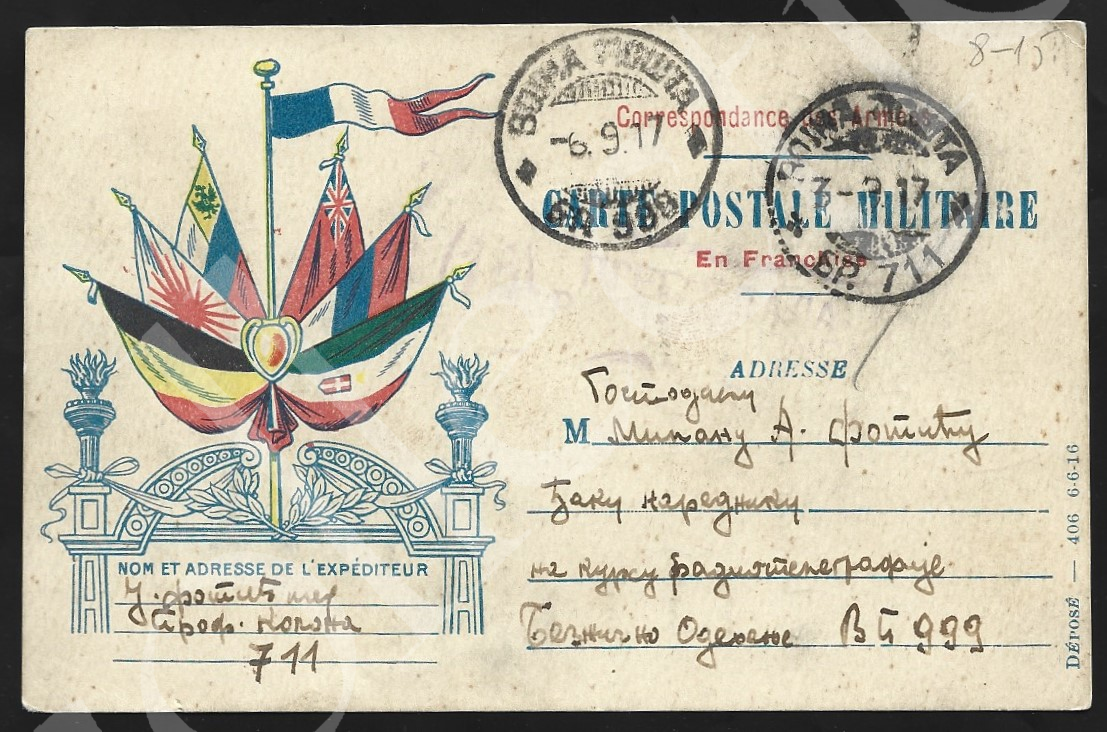 8-15
ВОЈНА ПОШТА
-6. 9.17
БР. 999
ВОЈНА ПОШТА
3-9.17
БР. 711
Correspondance des Armées
CARTE POSTALE MILITAIRE
En Franchise
ADRESSE
Господину
M Милану А. Фотићу
Ђаку нареднику
на курсу радиотелеграфије
Безжично Одељење ВП 999
NOM ET ADRESSE DE L'EXPÉDITEUR
Фотић
Проф. Колона
711
DÉPOSÉ — 406 6-6-16